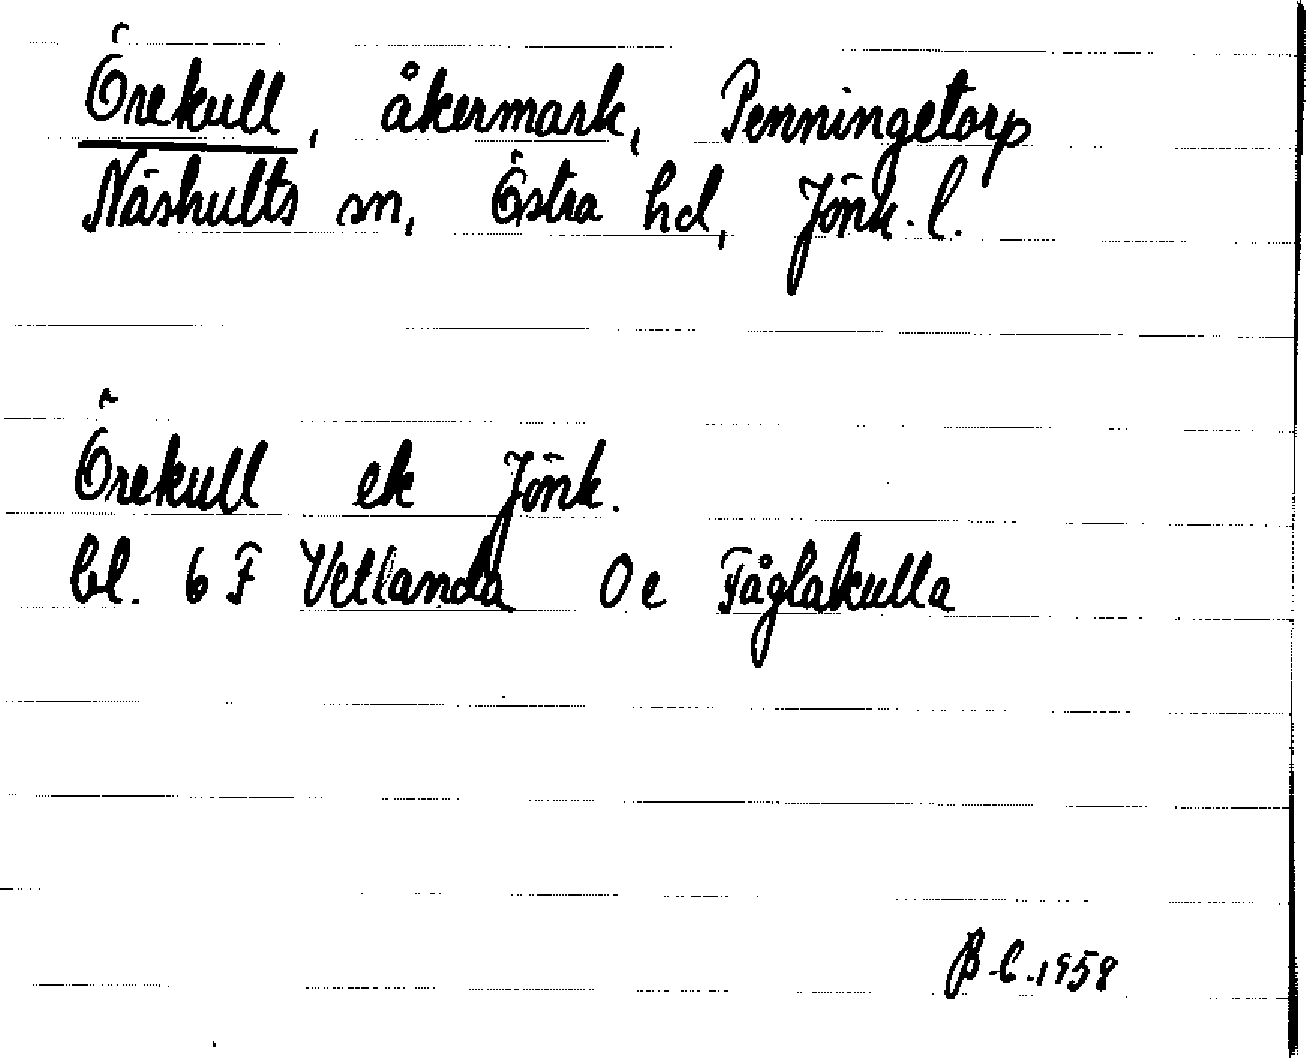 Örekull, åkermark, Penningetorp
Näshults sn, Östra hd, Jönk. l.
Örekull ek Jönk.
bl. 6 F Vetlanda 0 e Fåglakulla
B-C. 1958